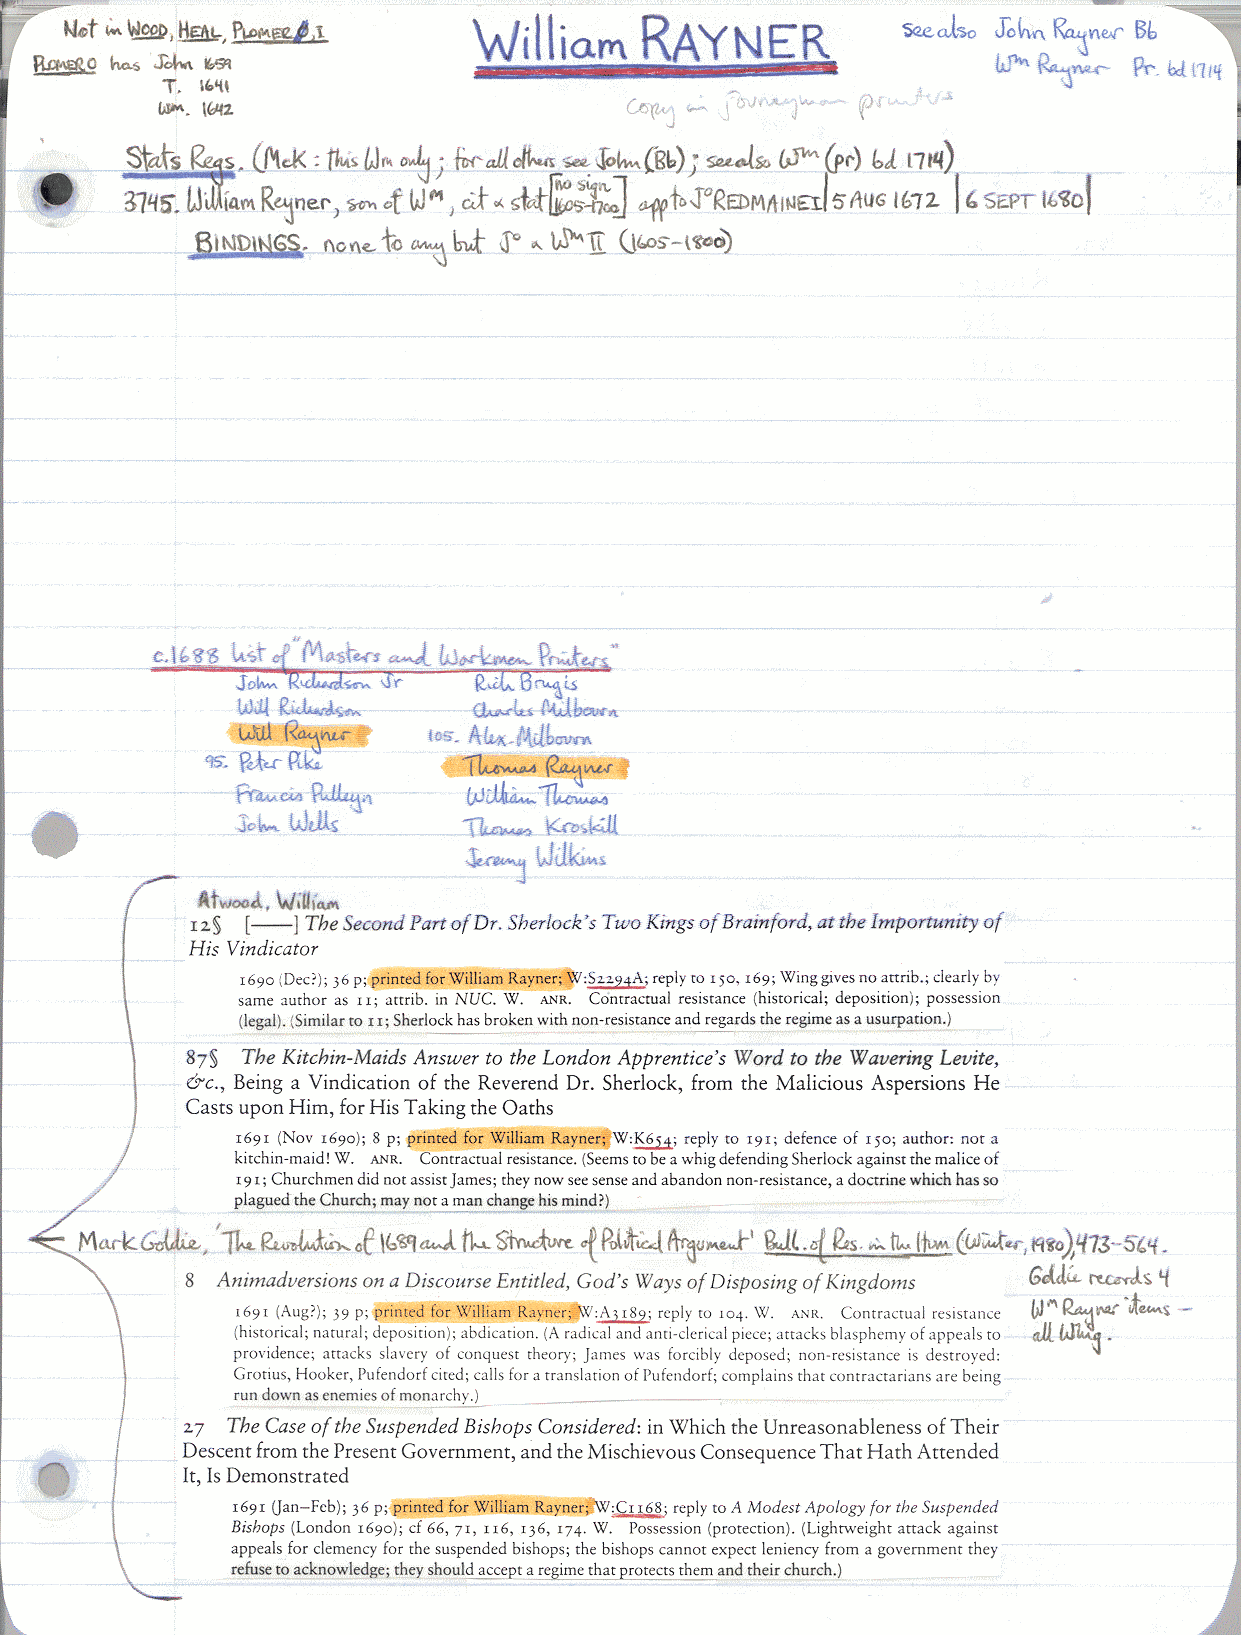 Not in WOOD, HEAL, PLOMER 0, I
William RAYNER
see also John Rayner Bb
PLOMER O has John 1659
Wm Rayner Pr. bd 1714
T. 1641
Wm. 1642
copy in journeyman printers
Stats Regs. (McK: this Wm only; for all others see John (Bb); see also Wm (pr) bd 1714)
3745. William Reyner, son of Wm, cit & stat [no sign 1605-1700] app to Jo REDMAINE I | 5 AUG 1672 | 6 SEPT 1680 |
BINDINGS. none to any but Jo & Wm II (1605-1800)
c.1688 list of "Masters and Workmen Printers"
John Richardson Jr
Will Richardson
Will Rayner
95. Peter Pike
Francis Pulleyn
John Wells
Rich Brugis
Charles Milbourn
105. Alex. Milbourn
Thomas Rayner
William Thomas
Thomas Kroskill
Jeremy Wilkins
Atwood, William
12§ [——] The Second Part of Dr. Sherlock's Two Kings of Brainford, at the Importunity of
His Vindicator
1690 (Dec?); 36 p; printed for William Rayner; W:S2294A; reply to 150, 169; Wing gives no attrib.; clearly by
same author as 11; attrib. in NUC. W. ANR. Contractual resistance (historical; deposition); possession
(legal). (Similar to 11; Sherlock has broken with non-resistance and regards the regime as a usurpation.)
87§ The Kitchin-Maids Answer to the London Apprentice's Word to the Wavering Levite,
&c., Being a Vindication of the Reverend Dr. Sherlock, from the Malicious Aspersions He
Casts upon Him, for His Taking the Oaths
1691 (Nov 1690); 8 p; printed for William Rayner; W:K654; reply to 191; defence of 150; author: not a
kitchin-maid! W. ANR. Contractual resistance. (Seems to be a whig defending Sherlock against the malice of
191; Churchmen did not assist James; they now see sense and abandon non-resistance, a doctrine which has so
plagued the Church; may not a man change his mind?)
Mark Goldie, 'The Revolution of 1689 and the Structure of Political Argument' Bull. of Res. in the Hum (Winter, 1980), 473-564.
8 Animadversions on a Discourse Entitled, God's Ways of Disposing of Kingdoms
1691 (Aug?); 39 p; printed for William Rayner; W:A3189; reply to 104. W. ANR. Contractual resistance
(historical; natural; deposition); abdication. (A radical and anti-clerical piece; attacks blasphemy of appeals to
providence; attacks slavery of conquest theory; James was forcibly deposed; non-resistance is destroyed:
Grotius, Hooker, Pufendorf cited; calls for a translation of Pufendorf; complains that contractarians are being
run down as enemies of monarchy.)
Goldie records 4
Wm Rayner items —
all Whig.
27 The Case of the Suspended Bishops Considered: in Which the Unreasonableness of Their
Descent from the Present Government, and the Mischievous Consequence That Hath Attended
It, Is Demonstrated
1691 (Jan–Feb); 36 p; printed for William Rayner; W:C1168; reply to A Modest Apology for the Suspended
Bishops (London 1690); cf 66, 71, 116, 136, 174. W. Possession (protection). (Lightweight attack against
appeals for clemency for the suspended bishops; the bishops cannot expect leniency from a government they
refuse to acknowledge; they should accept a regime that protects them and their church.)